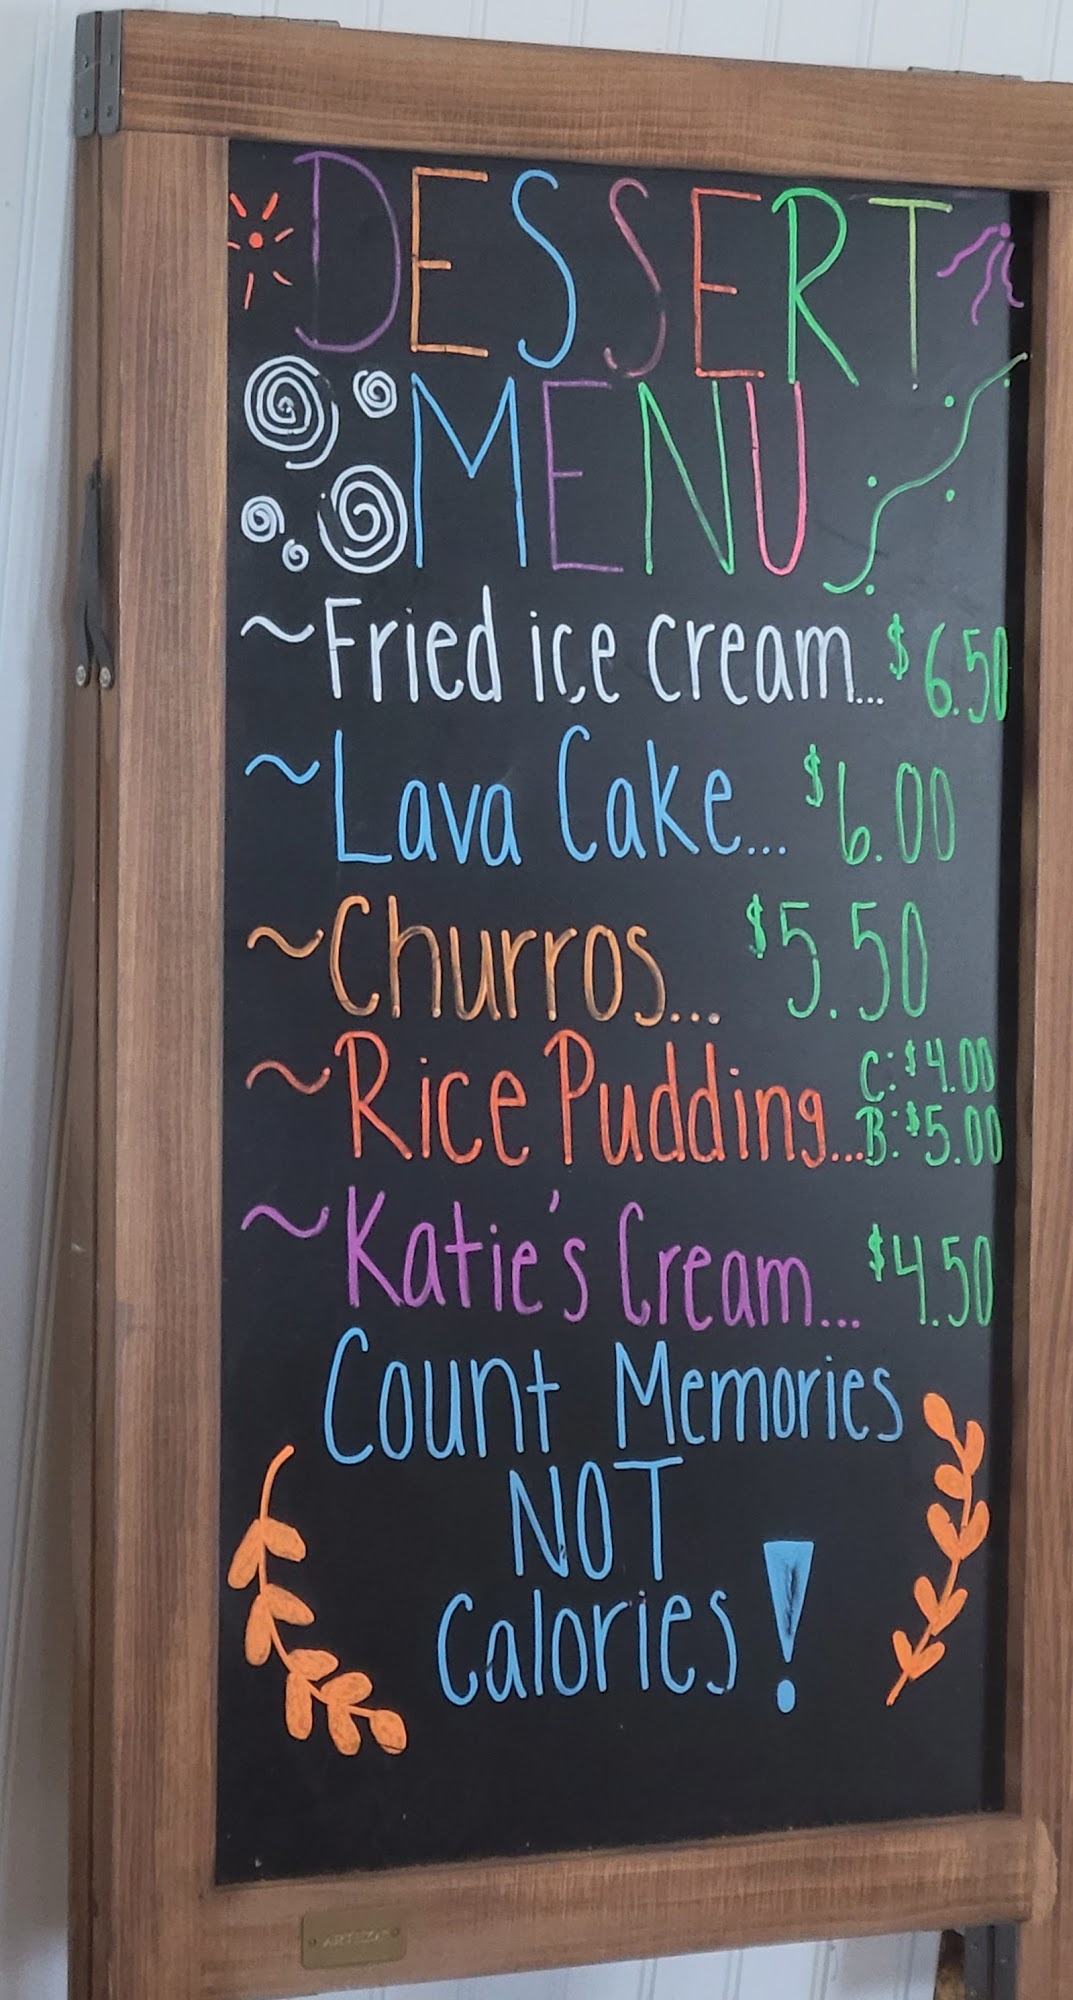 DESSERT
MENU
~Fried ice cream...$6.50
~Lava Cake... $6.00
~Churros... $5.50
~Rice Pudding...C:$4.00
B:$5.00
~Katie's Cream... $4.50
Count Memories
NOT
Calories!
ARTEZA